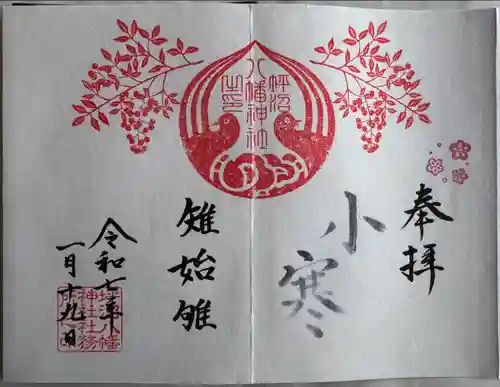 奉拝
小寒
坪沼
八幡神社
之印
雉始雊
令和七年
一月十九日
坪沼八幡
神社社務